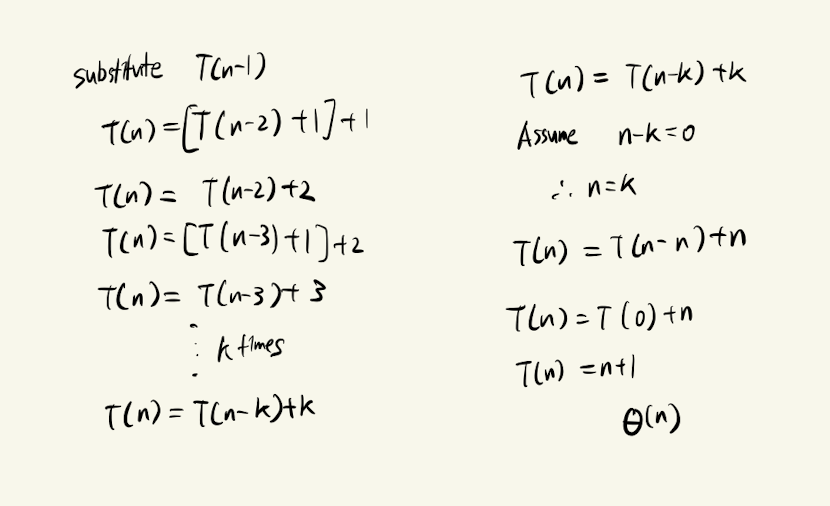 substitute T(n-1)
T(n) = [T(n-2) +1] +1
T(n) = T(n-2)+2
T(n) = [T(n-3)+1]+2
T(n) = T(n-3)+3
⋮ k times
T(n) = T(n-k)+k
T(n) = T(n-k)+k
Assume n-k=0
∴ n=k
T(n) = T(n-n)+n
T(n) = T(0)+n
T(n) = n+1
Θ(n)